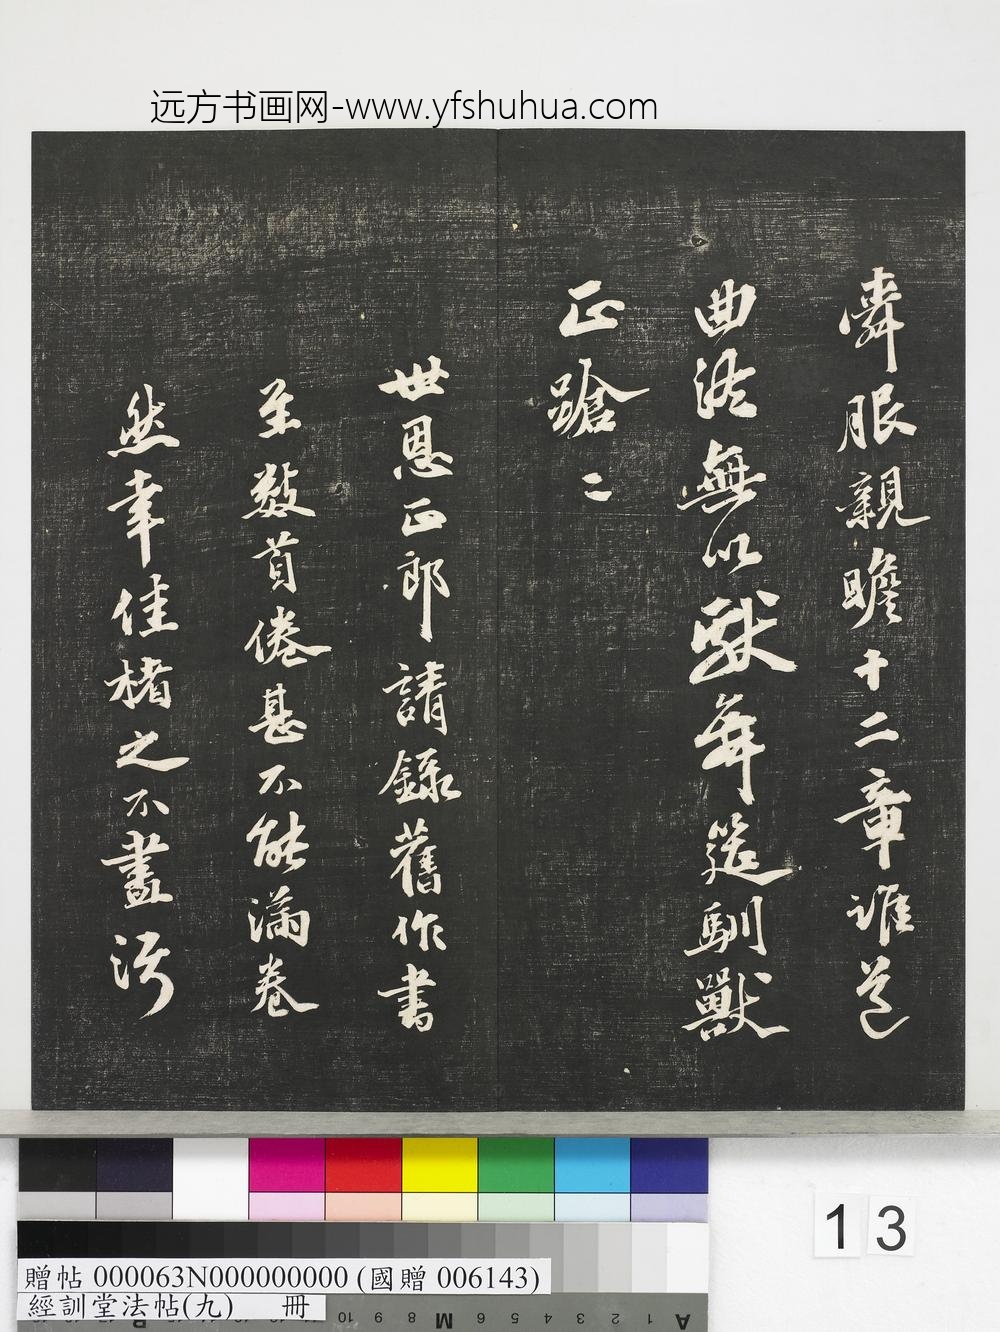 远方书画网-www.yfshuhua.com
舜服親瞻十二章誰道
曲終無以獻年筵馴獸
正蹌二
世恩正郎請錄舊作書
至數首倦甚不能滿卷
然幸佳楮之不盡污
13
贈帖 000063N000000000 (國贈 006143)
經訓堂法帖(九) 冊